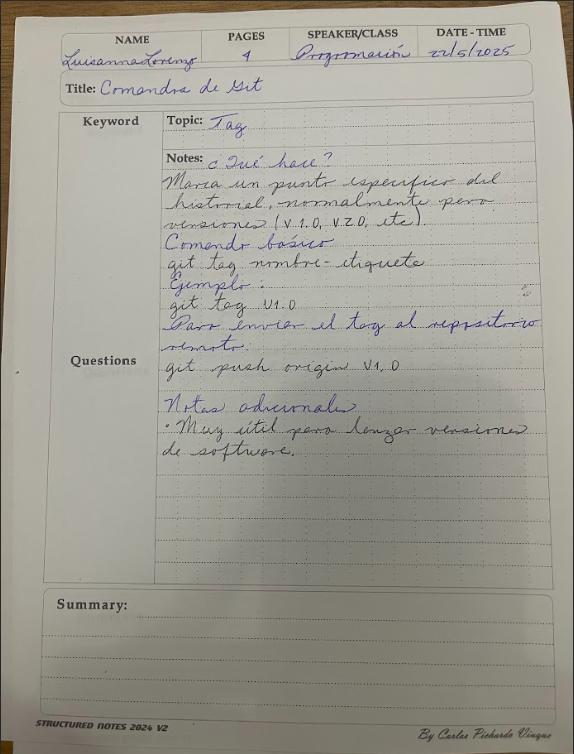 NAME PAGES SPEAKER/CLASS DATE - TIME
Luisanna Lorenzo 4 Programación 22/5/2025
Title: Comandos de Git
Keyword
Topic: Tag
Notes: ¿Qué hace?
Marca un punto específico del
historial, normalmente para
versiones (v 1.0, v.2.0, etc).
Comando básico
git tag nombre-etiqueta
Ejemplo:
git tag v1.0
Para enviar el tag al repositorio
remoto:
Questions
git push origin v1.0
Notas adicionales
• Muy útil para lanzar versiones
de software.
Summary:
STRUCTURED NOTES 2024 V2
By Carlos Pichardo Viuque